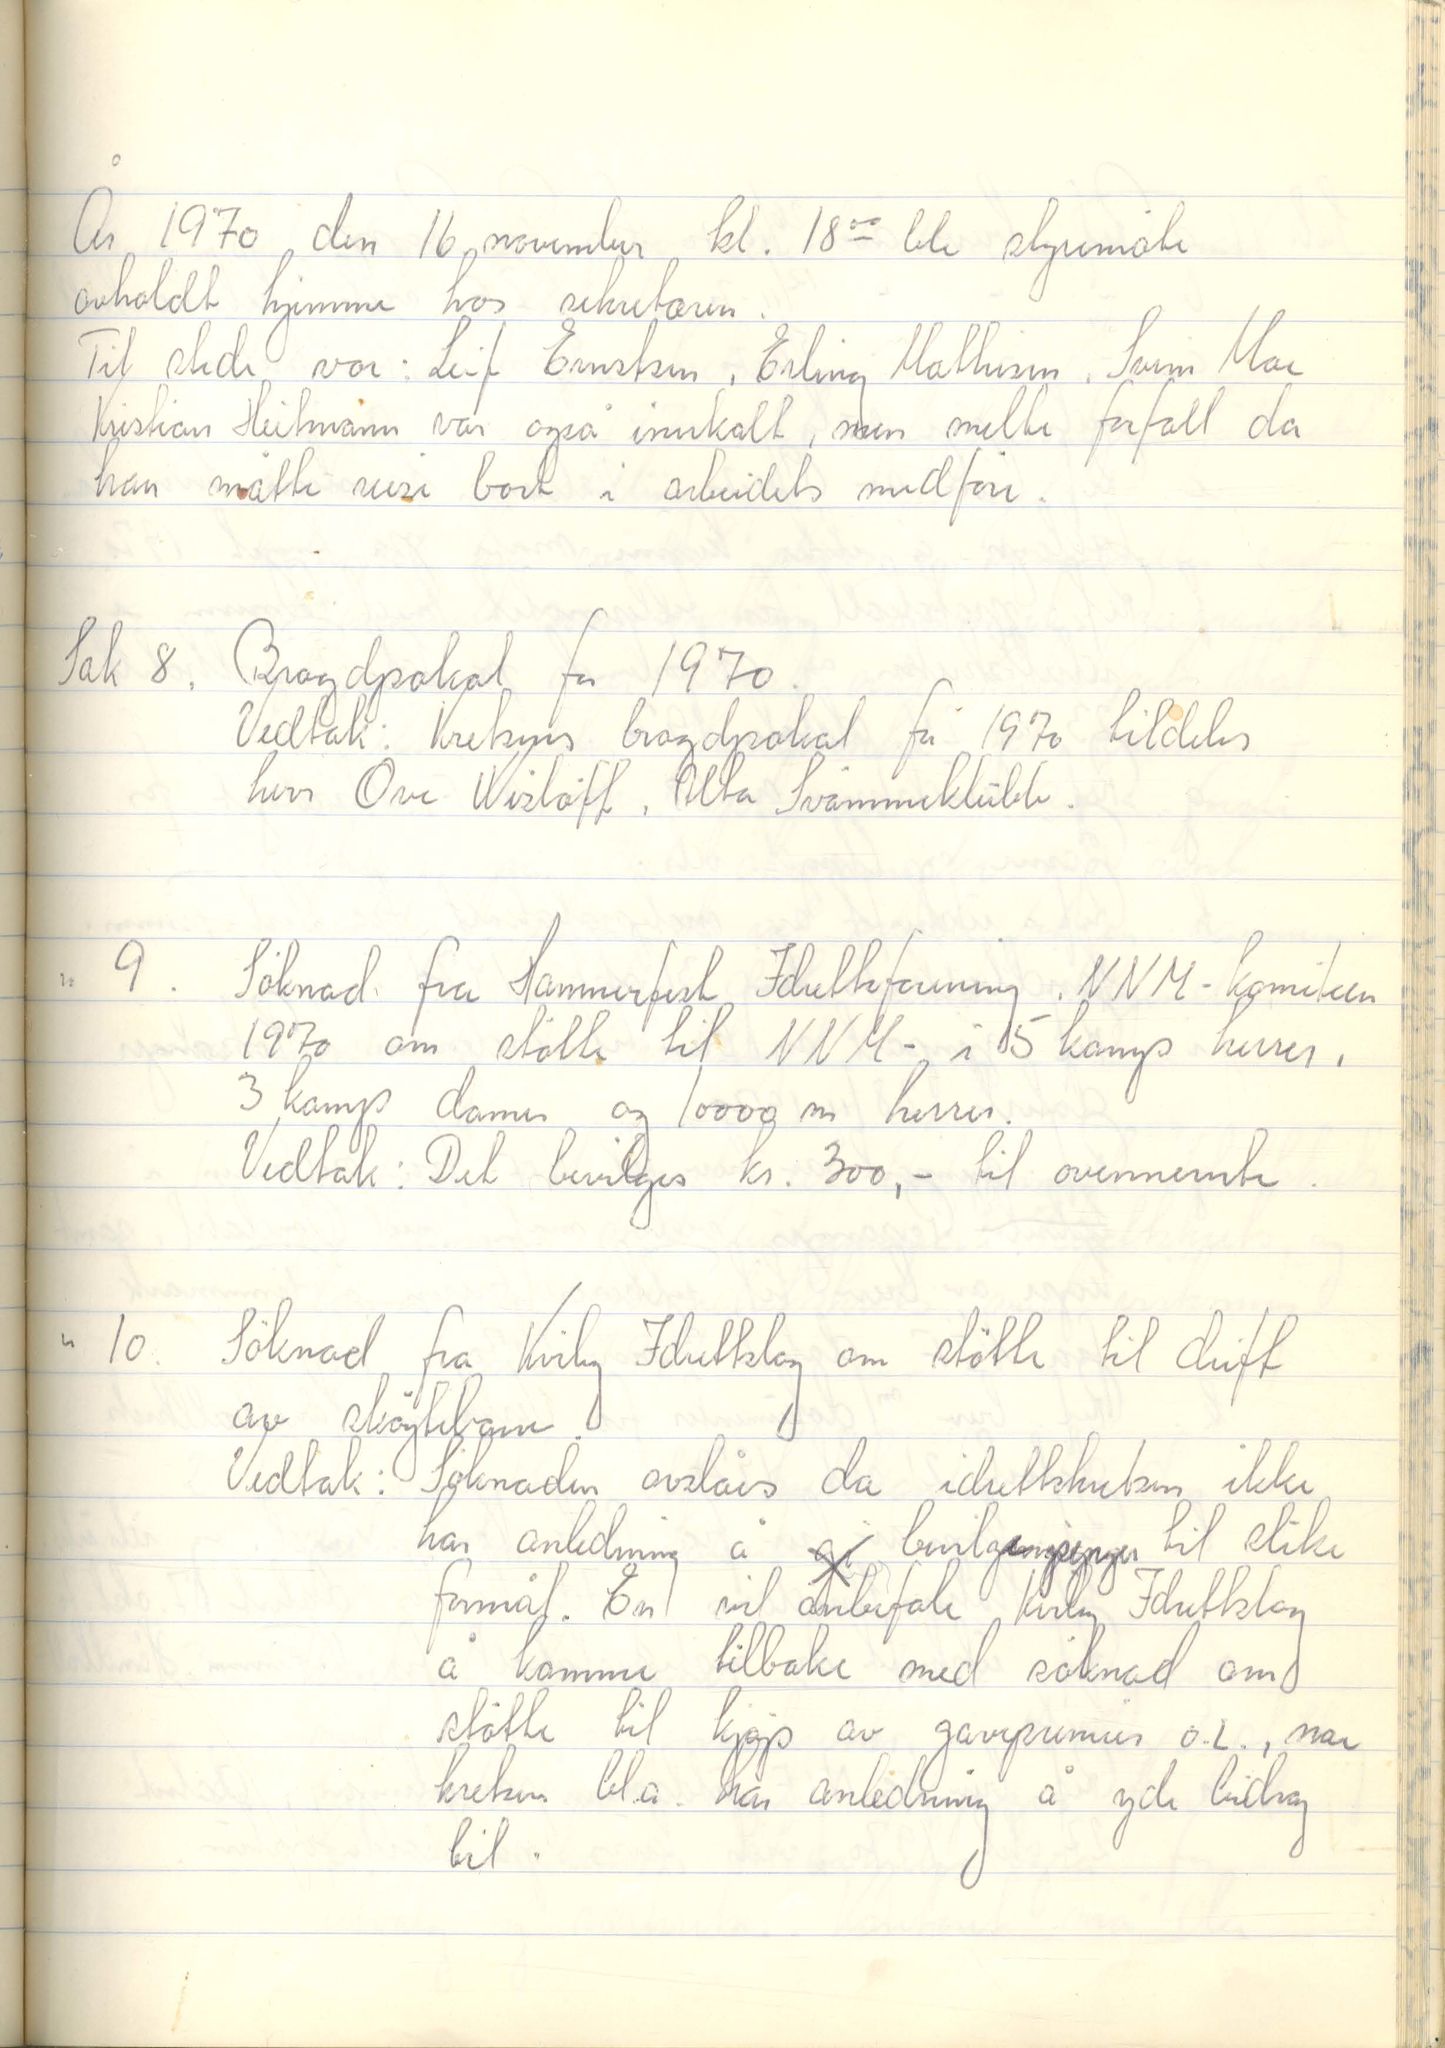 År 1970 den 16 november kl. 18⁰⁰ ble styremöte
avholdt hjemme hos sekretæren.
Til stede var: Leif Ernstsen, Erling Mathisen, Svein Moe
Kristian Heitmann var også innkalt, men melte forfall da
han måtte reise bort i arbeidets medföre.
Sak 8. Bragdpokal for 1970.
Vedtak: Kretsens bragdpokal for 1970 tildeles
herr Ove Wislöff, Alta Svömmeklubb.
" 9. Söknad fra Hammerfest Idrettsforening, NNM-komiteen
1970 om stötte til NNM- i 5 kamp herrer,
3 kamp damer og 10000 m herrer.
Vedtak: Det bevilges kr. 300,- til ovennevnte.
" 10. Söknad fra Kviby Idrettslag om stötte til drift
av sköytebane.
Vedtak: Söknaden avslåes da idrettskretsen ikke
har anledning å gi bevilgninger til slike
formål. En vil anbefale Kviby Idrettslag
å komme tilbake med söknad om
stötte til kjøp av gavepremier o.l., noe
kretsen bl.a. har anledning å yde bidrag
til.